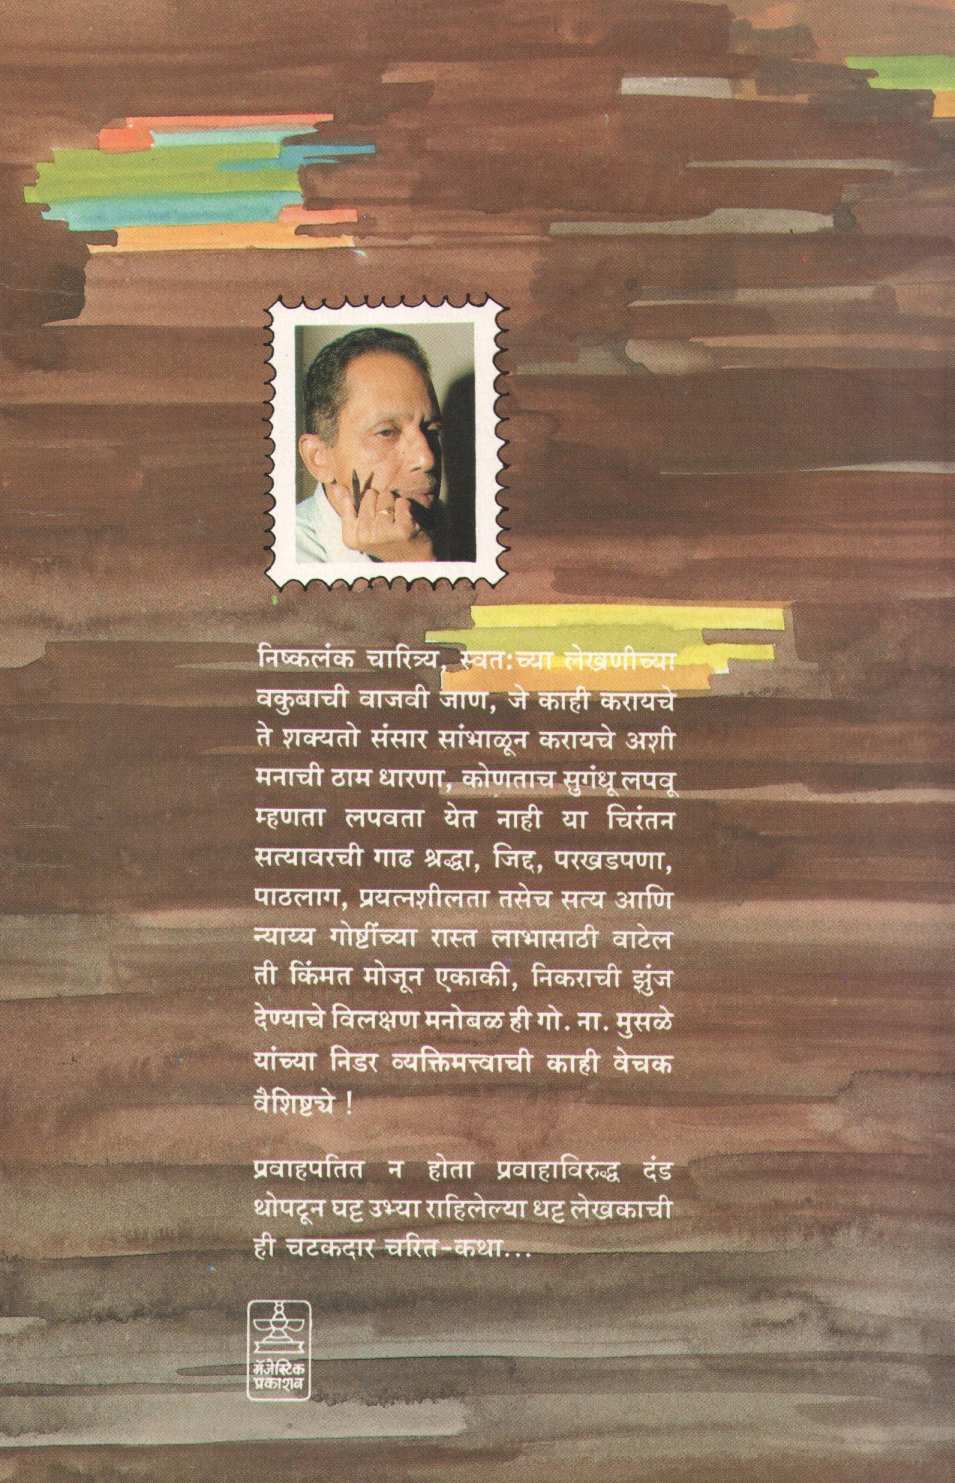 निष्कलंक चारित्र्य, स्वत:च्या लेखणीच्या
वकुबाची वाजवी जाण, जे काही करायचे
ते शक्यतो संसार सांभाळून करायचे अशी
मनाची ठाम धारणा, कोणताच सुगंधू लपवू
म्हणता लपवता येत नाही या चिरंतन
सत्यावरची गाढ श्रद्धा, जिद्द, परखडपणा,
पाठलाग, प्रयत्नशीलता तसेच सत्य आणि
न्याय्य गोष्टींच्या रास्त लाभासाठी वाटेल
ती किंमत मोजून एकाकी, निकराची झुंज
देण्याचे विलक्षण मनोबळ ही गो. ना. मुसळे
यांच्या निडर व्यक्तिमत्त्वाची काही वेचक
वैशिष्ट्ये !
प्रवाहपतित न होता प्रवाहाविरुद्ध दंड
थोपटून घट्ट उभ्या राहिलेल्या धट्ट लेखकाची
ही चटकदार चरित-कथा...
मॅजेस्टिक
प्रकाशन